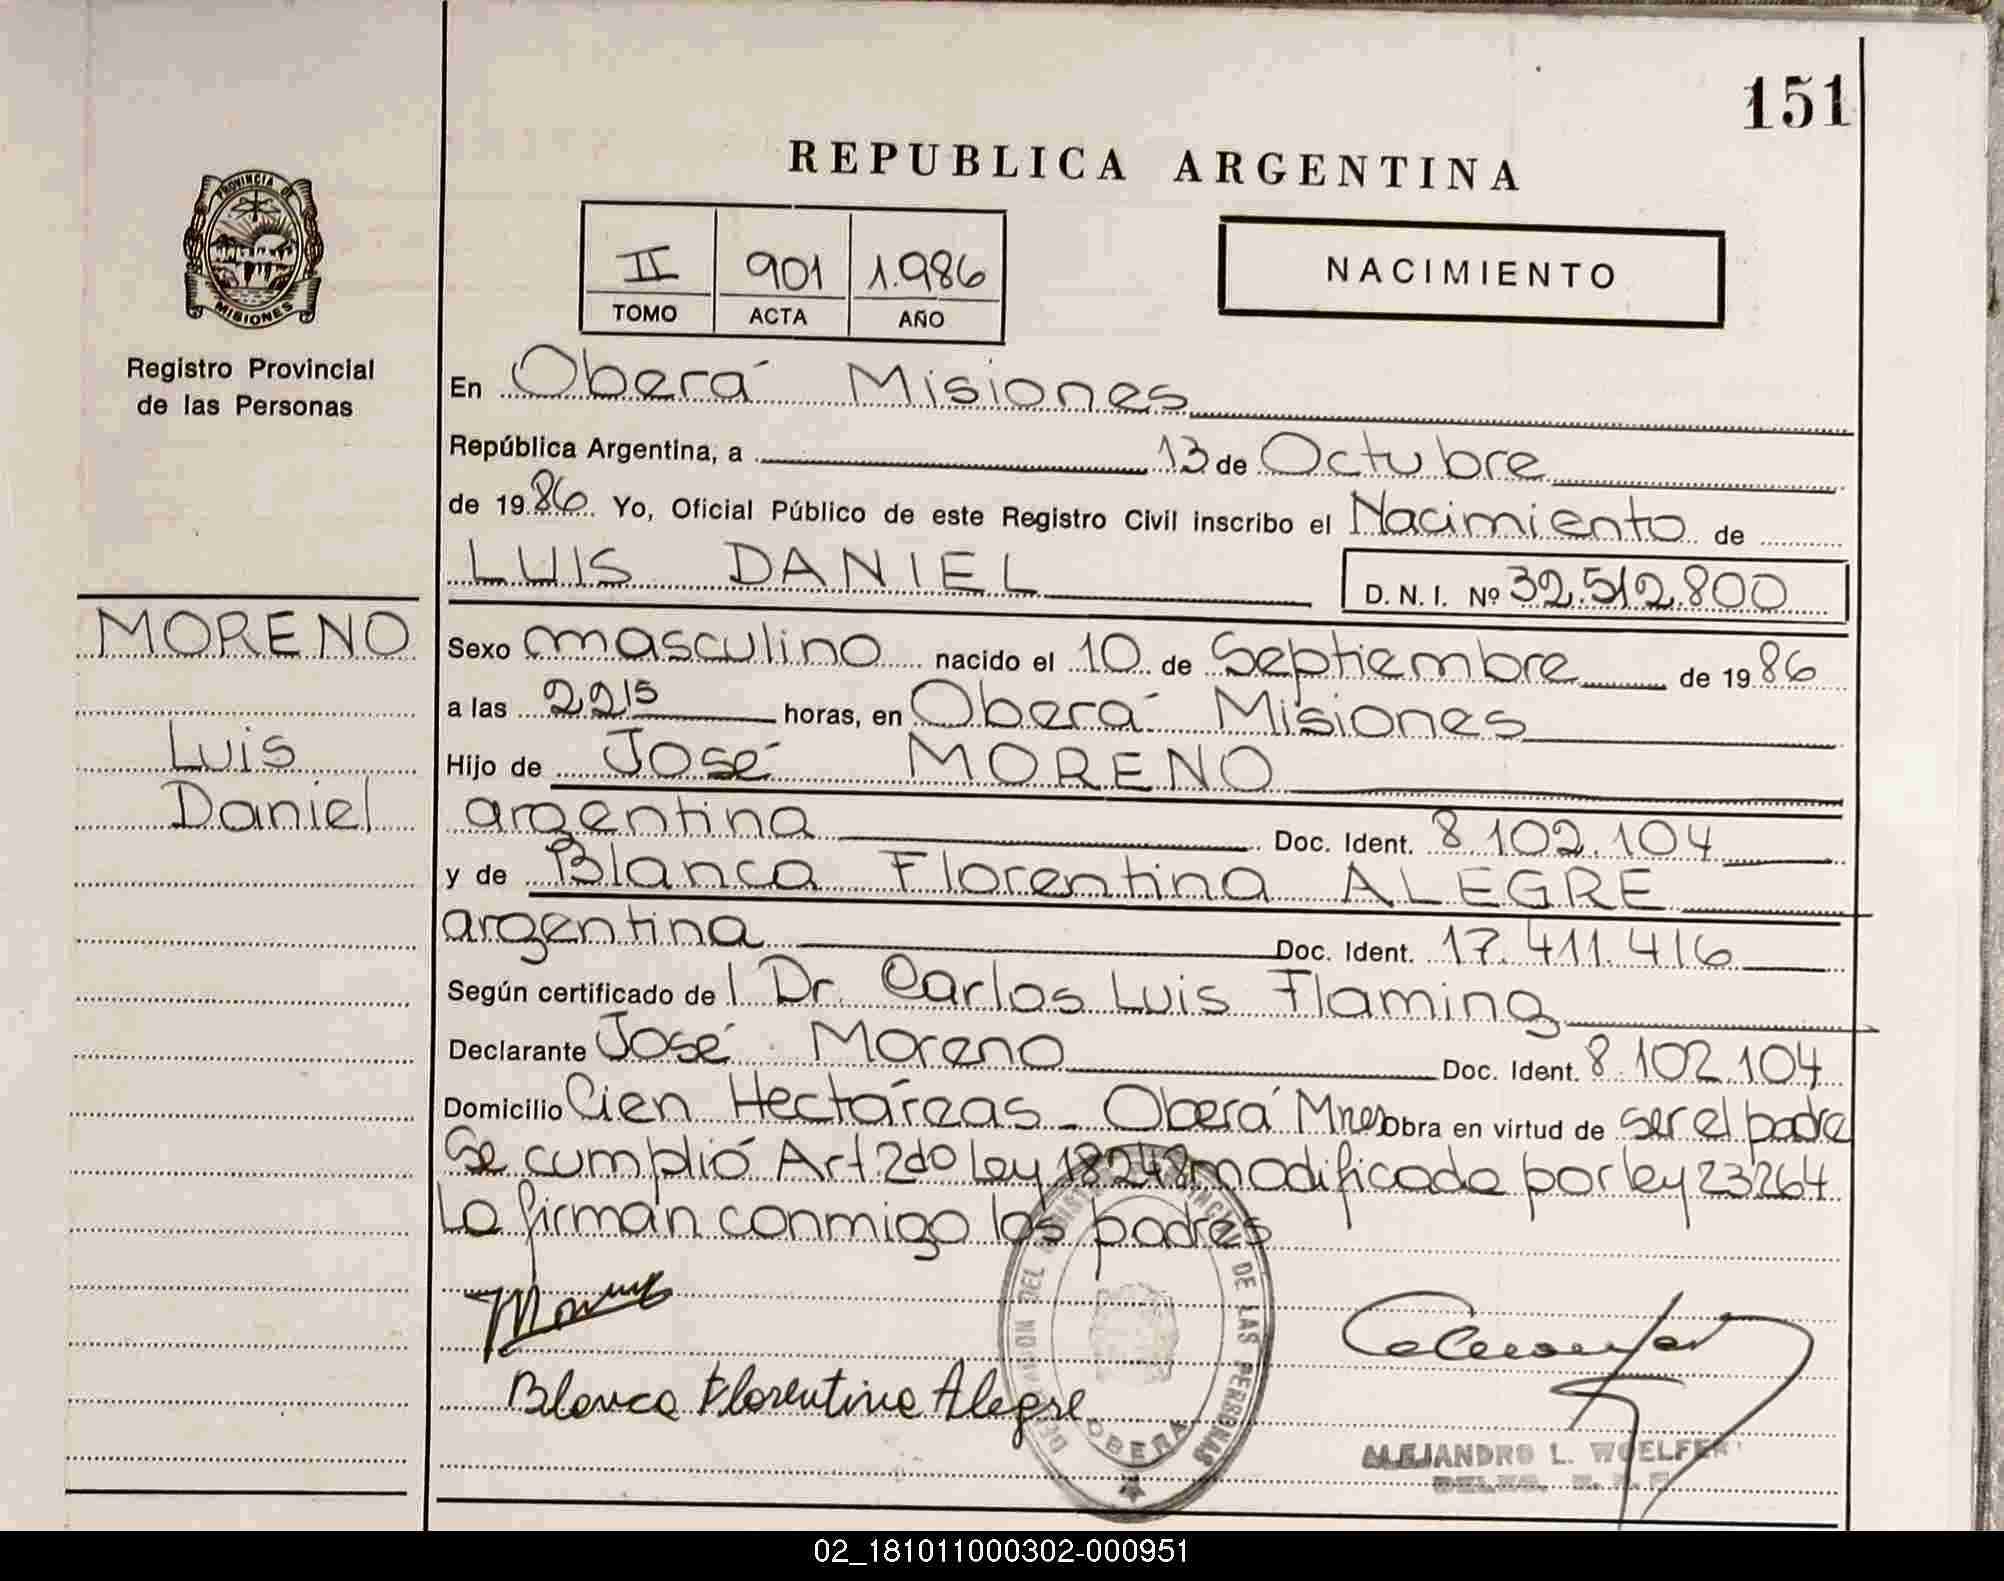 151
REPUBLICA ARGENTINA
PROVINCIA DE
MISIONES
II 901 1.986
TOMO ACTA AÑO
NACIMIENTO
Registro Provincial
de las Personas
En Oberá Misiones
República Argentina, a 13 de Octubre
de 1986 Yo, Oficial Público de este Registro Civil inscribo el Nacimiento de
LUIS DANIEL D. N. I. Nº 32.512.800
MORENO
Luis
Daniel
Sexo masculino nacido el 10 de Septiembre de 1986
a las 2215 horas, en Oberá Misiones
Hijo de José MORENO
argentina Doc. Ident. 8.102.104
y de Blanca Florentina ALEGRE
argentina Doc. Ident. 17.411.416
Según certificado del Dr. Carlos Luis Flaming
Declarante José Moreno Doc. Ident. 8.102.104
Domicilio Cien Hectáreas - Oberá Mnes Obra en virtud de ser el padre
Se cumplió Art 2do Ley 18248 modificada por ley 23264
Lo firman conmigo los padres
Blanca Florentina Alegre
DE LAS PERSONAS
OBERA
ALEJANDRO L. WOELFERT
02_181011000302-000951